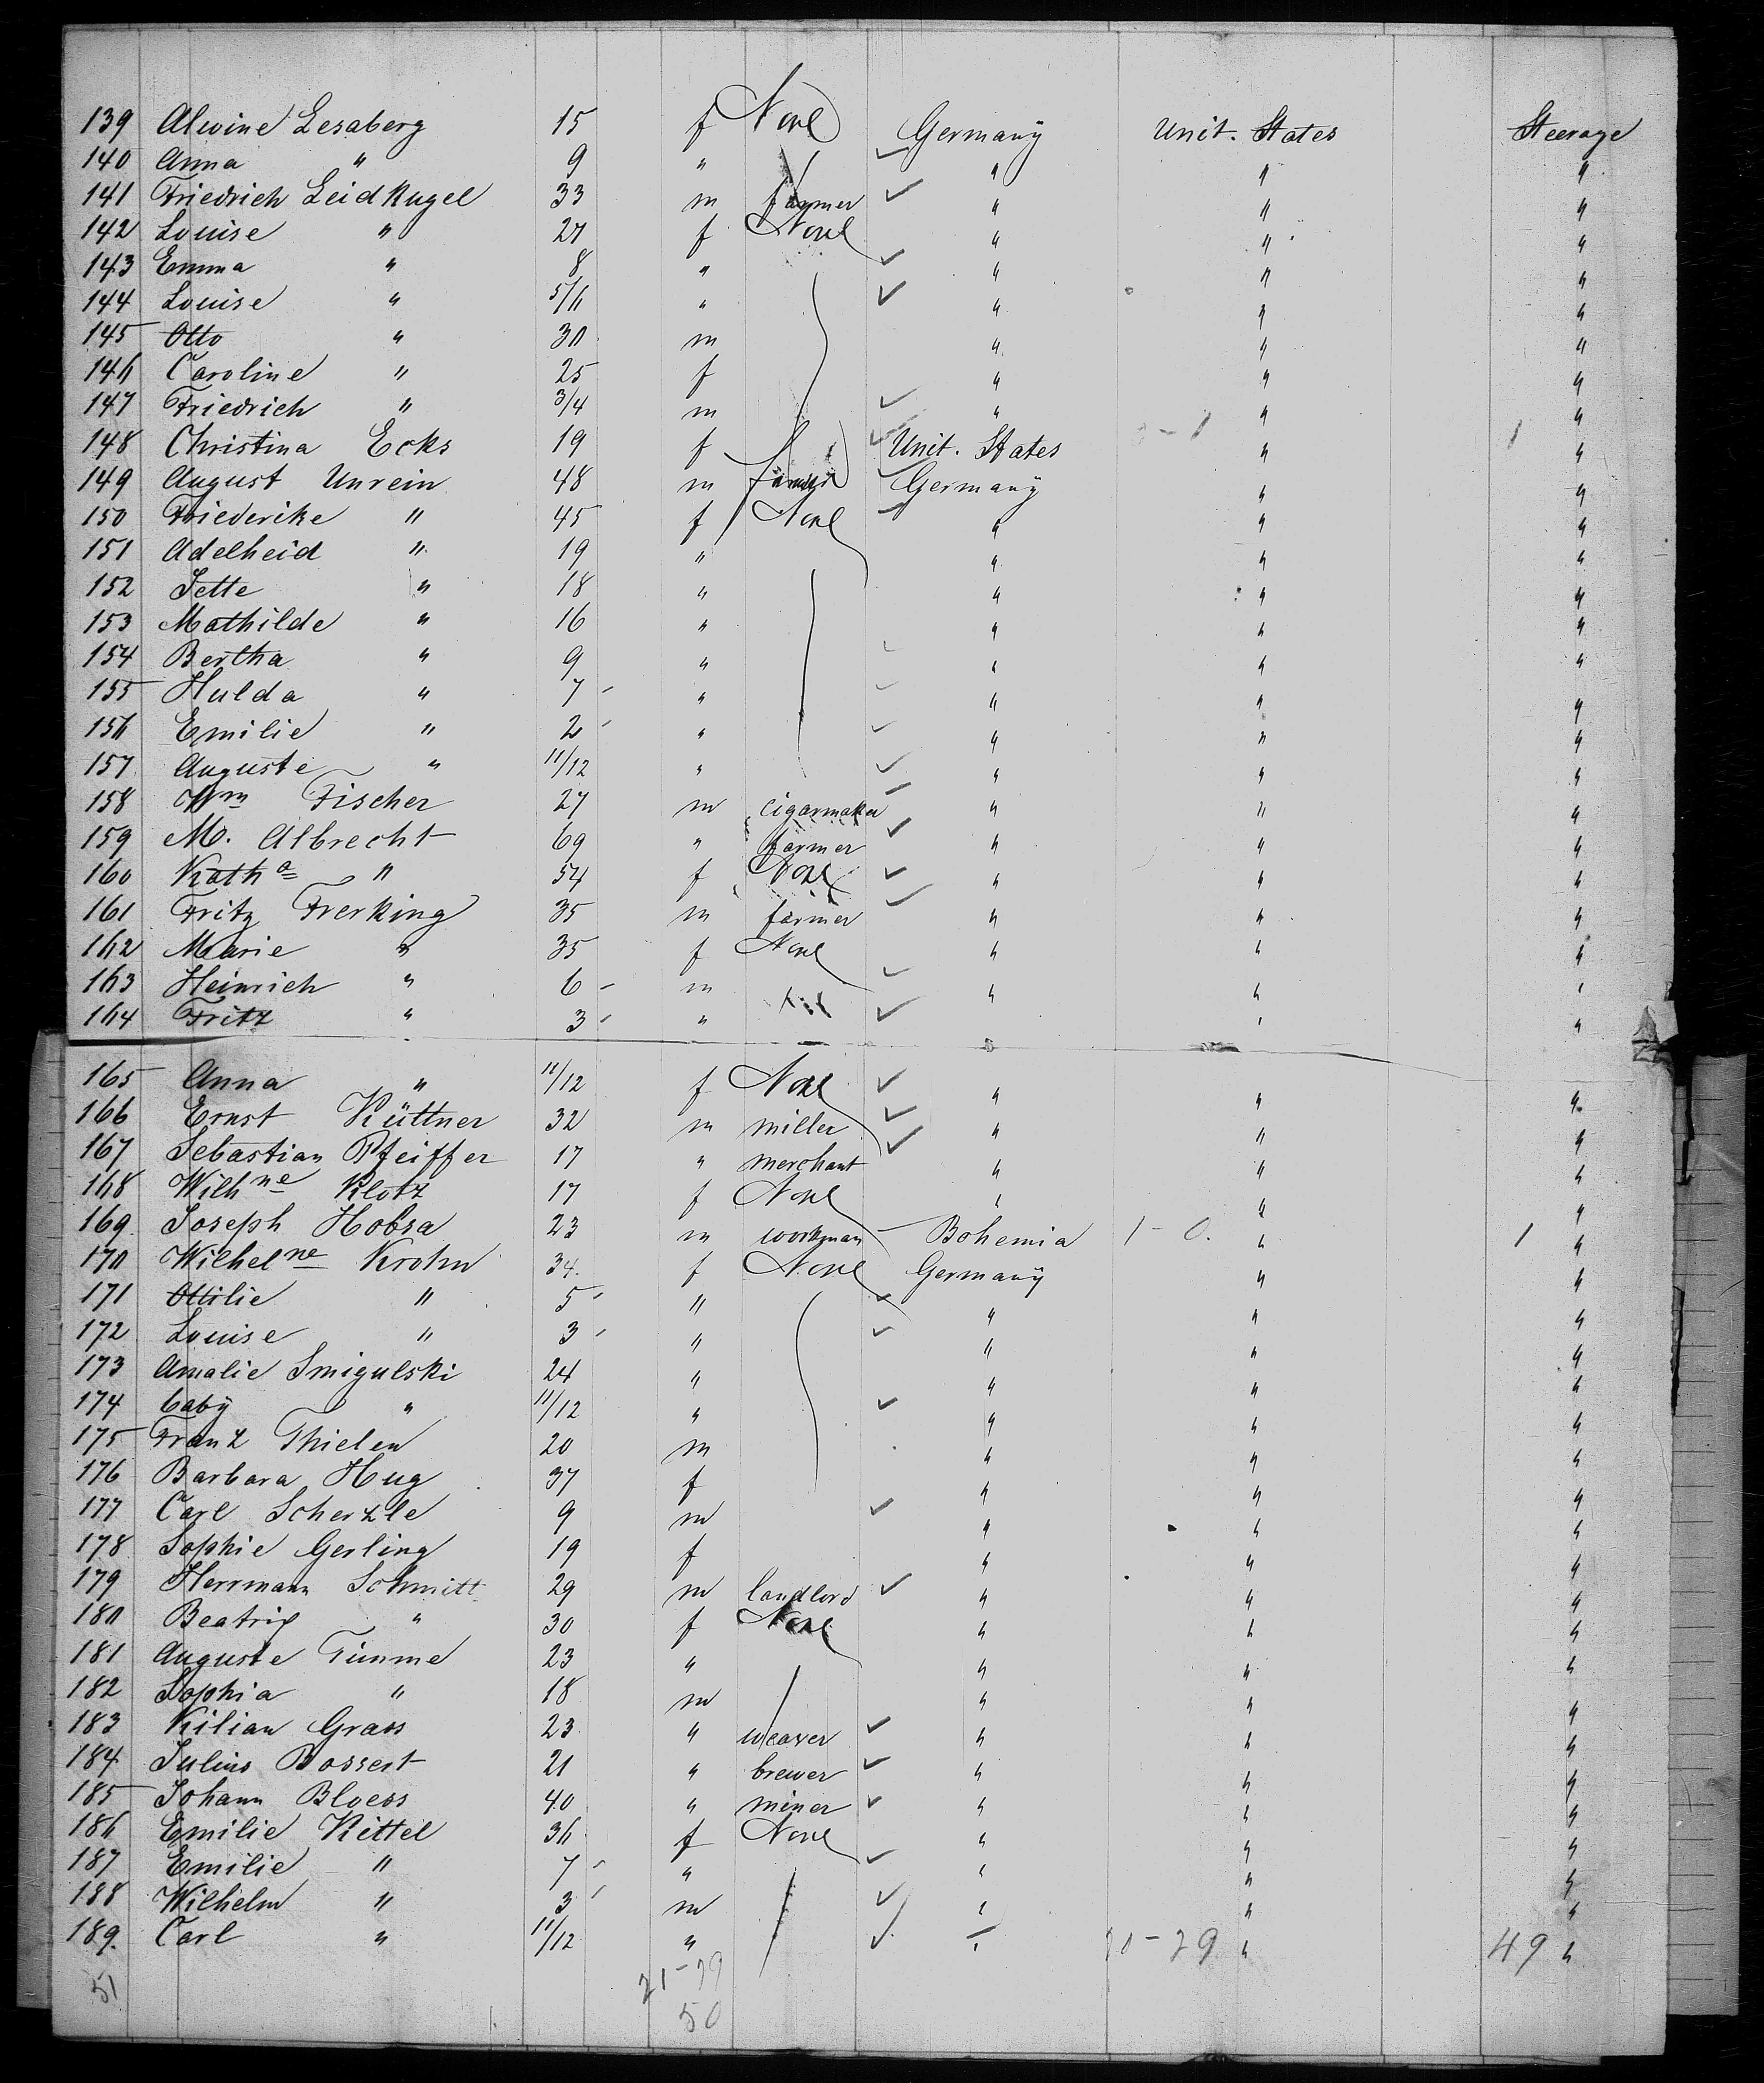 139 Alwine Lesaberg 15 f None Germany Unit. States Steerage
140 Anna " 9 " " " "
141 Friedrich Leidkugel 33 m farmer " " "
142 Louise " 27 f None " " "
143 Emma " 8 " " " "
144 Louise " 5/6 " " " "
145 Otto " 30 m " " "
146 Caroline " 25 f " " "
147 Friedrich " 3/4 m " " "
148 Christina Ecks 19 f Unit. States - 1 " 1 "
149 August Unrein 48 m farmer Germany " "
150 Friederike " 45 f None " " "
151 Adelheid " 19 " " " "
152 Jette " 18 " " " "
153 Mathilde " 16 " " " "
154 Bertha " 9 " " " "
155 Hulda " 7 " " " "
156 Emilie " 2 " " " "
157 Auguste " 11/12 " " " "
158 Wm Fischer 27 m cigarmaker " " "
159 M. Albrecht 69 " farmer " " "
160 Katha " 54 f None " " "
161 Fritz Frerking 35 m farmer " " "
162 Marie " 35 f None " " "
163 Heinrich " 6 m " " "
164 Fritz " 3 " " " "
165 Anna " 11/12 f None " " "
166 Ernst Küttner 32 m miller " " "
167 Sebastian Pfeiffer 17 " merchant " " "
168 Wilhne Klotz 17 f None " " "
169 Joseph Hobsa 23 m workman Bohemia 1 - 0. " 1 "
170 Wilhelne Krohn 34 f None Germany " "
171 Ottilie " 5 " " " "
172 Louise " 3 " " " "
173 Amalie Smigulski 24 " " " "
174 baby " 11/12 " " " "
175 Franz Thielen 20 m " " "
176 Barbara Hug 37 f " " "
177 Carl Scherzle 9 m " " "
178 Sophie Gerling 19 f " " "
179 Herrmann Schmitt 29 m landlord " " "
180 Beatrix " 30 f None " " "
181 Auguste Timme 23 " " " "
182 Sophia " 18 m " " "
183 Kilian Grass 23 " weaver " " "
184 Julius Bossert 21 " brewer " " "
185 Johann Bloess 40 " miner " " "
186 Emilie Kittel 36 f None " " "
187 Emilie " 7 " " " "
188 Wilhelm " 3 m " " "
189. Carl " 11/12 " " - 29 " 49 "
51 21-29
50